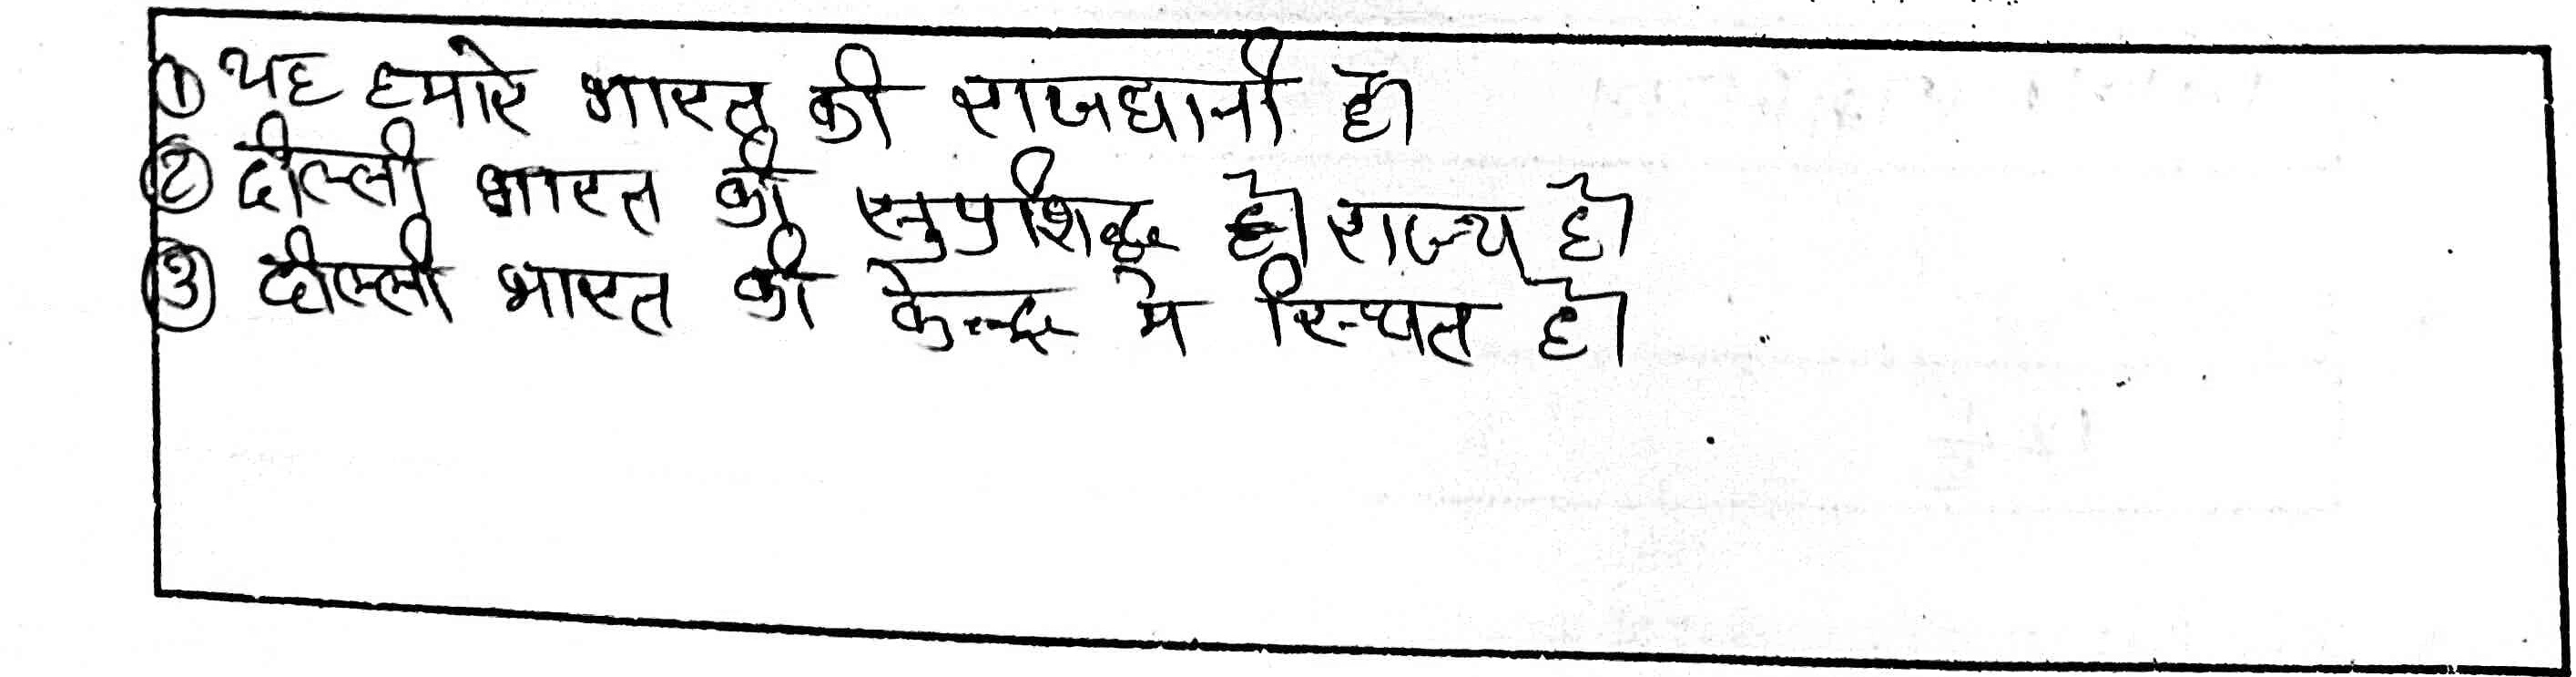 ① यह हमारे भारत की राजधानी है।
② दील्ली भारत की सुप्रशिद्ध है। राज्य है।
③ दील्ली भारत की केन्द्र मे स्थित है।